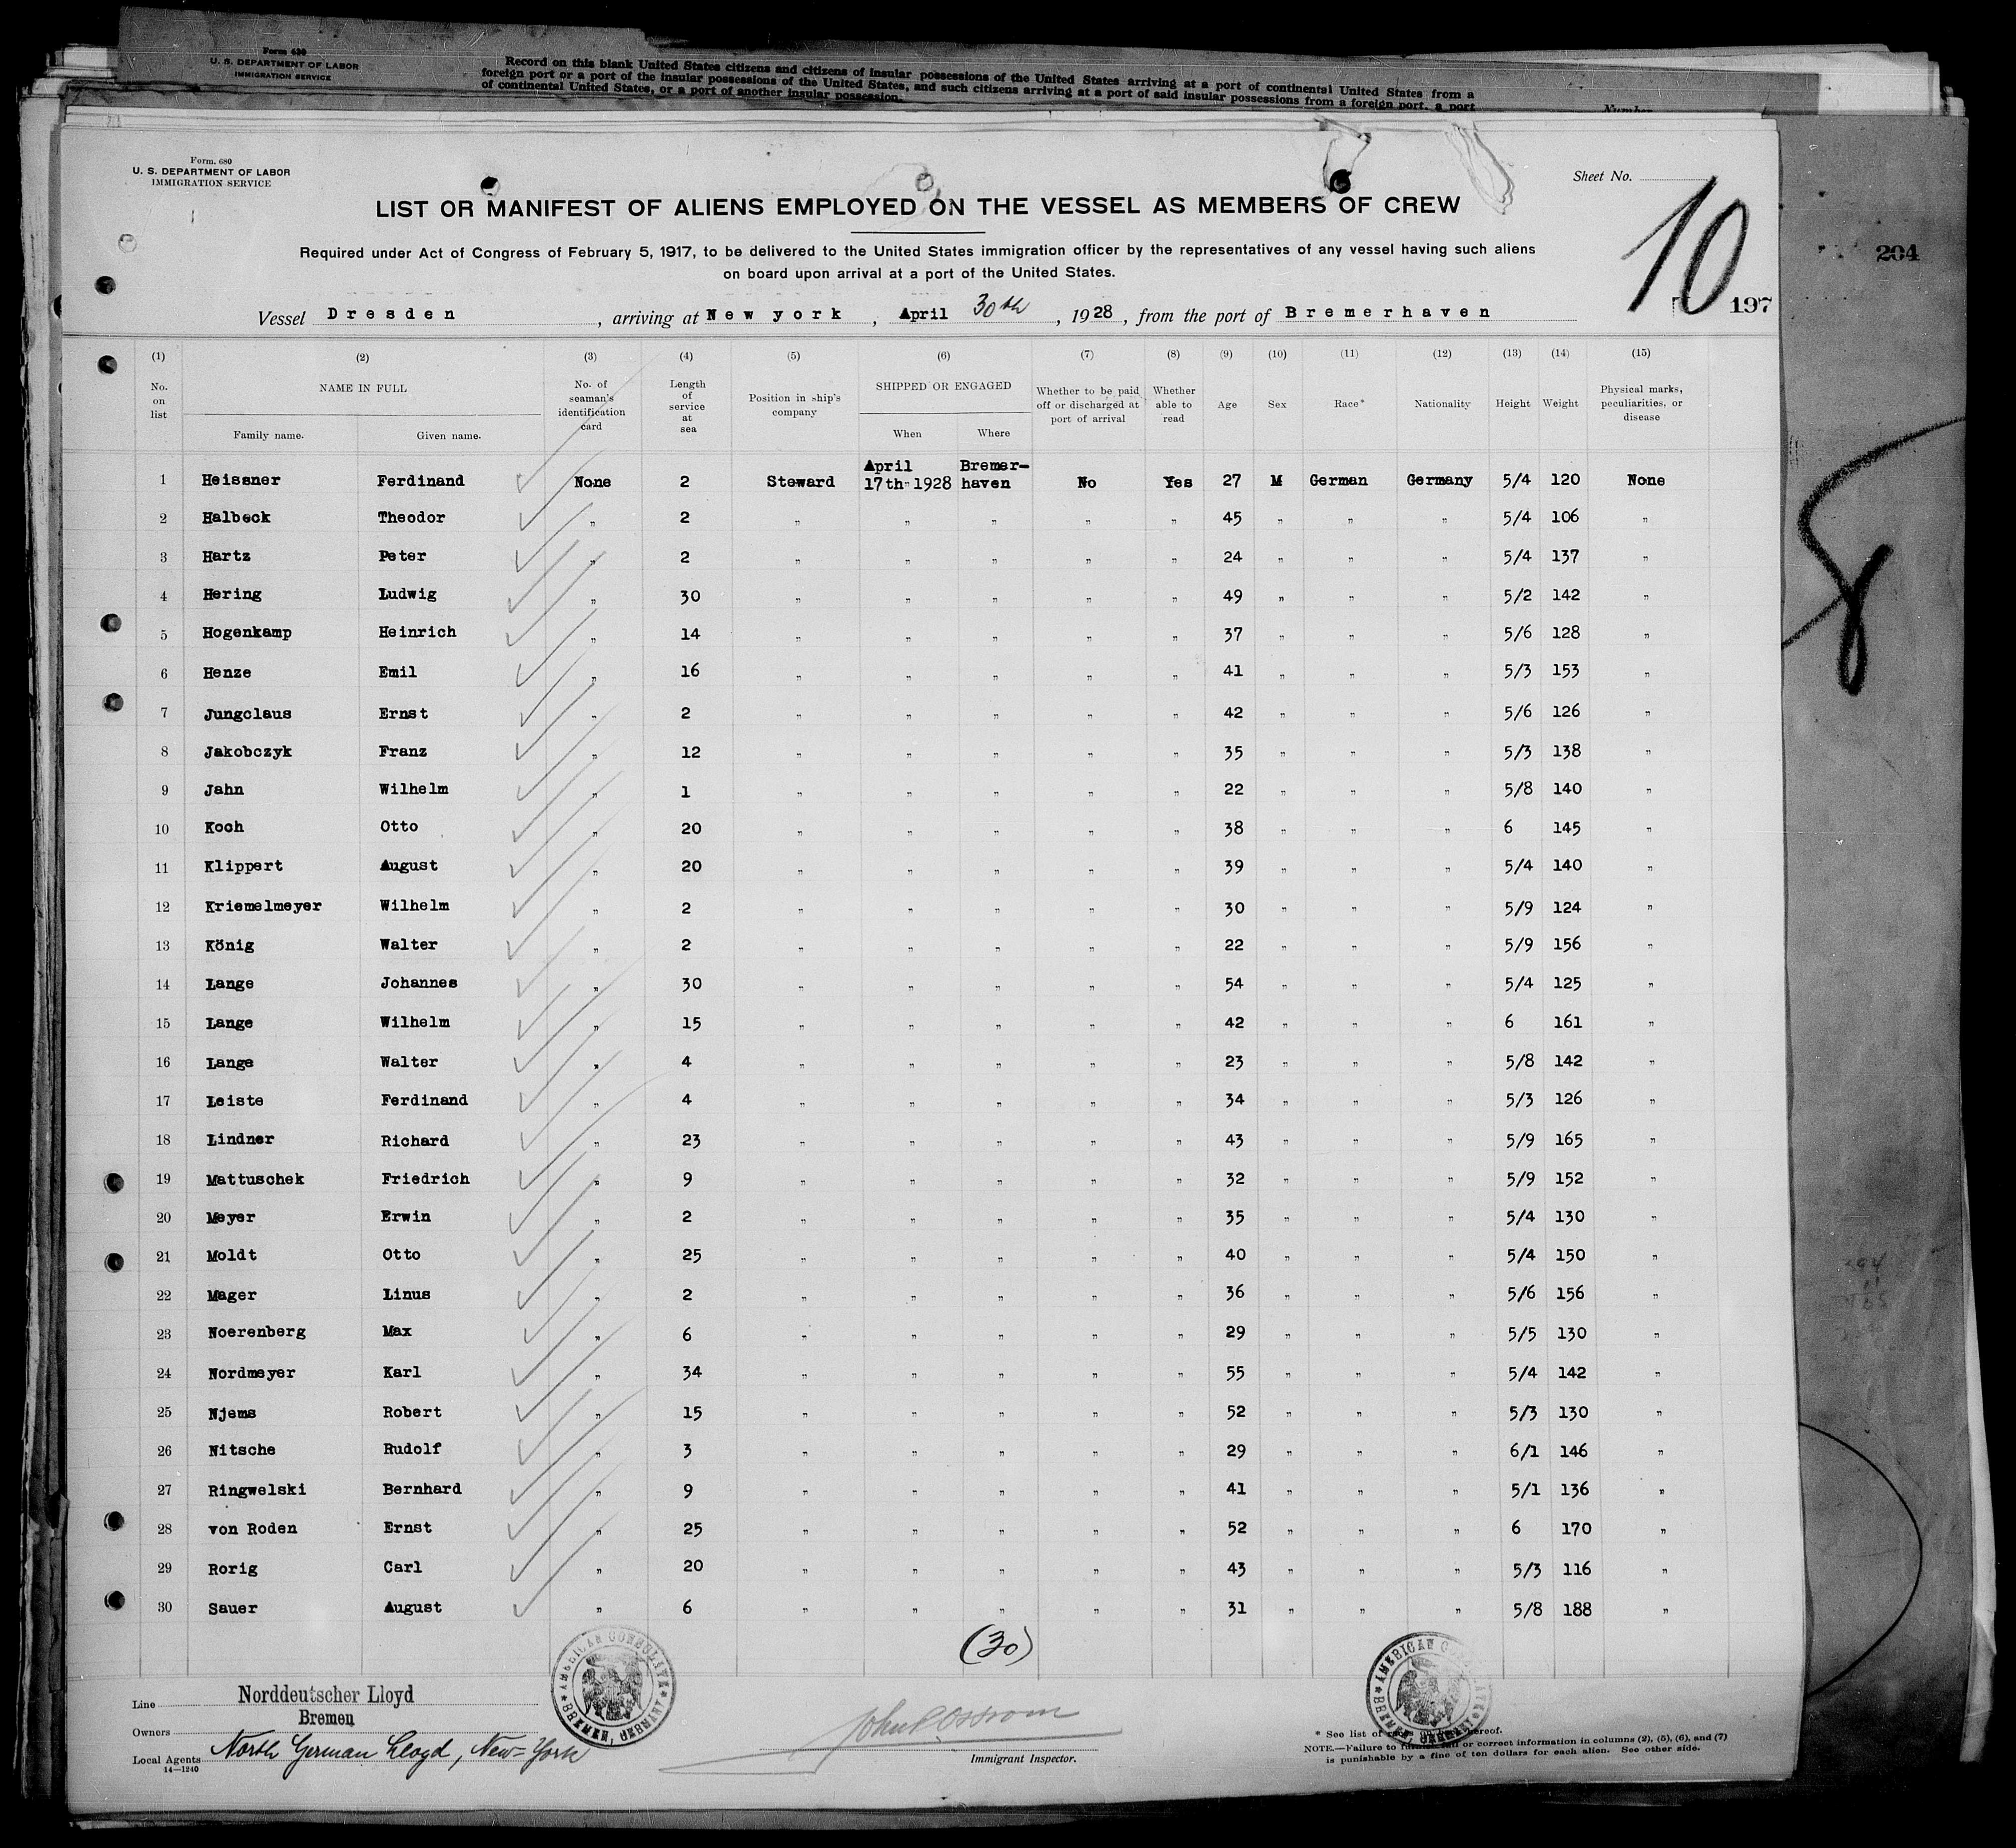 Form 630
U. S. DEPARTMENT OF LABOR
IMMIGRATION SERVICE
Record on this blank United States citizens and citizens of insular possessions of the United States arriving at a port of continental United States from a
foreign port or a port of the insular possessions of the United States, and such citizens arriving at a port of said insular possessions from a foreign port, a port
of continental United States, or a port of another insular possession.
Number
Form. 680
U. S. DEPARTMENT OF LABOR
IMMIGRATION SERVICE
Sheet No.
10
LIST OR MANIFEST OF ALIENS EMPLOYED ON THE VESSEL AS MEMBERS OF CREW
Required under Act of Congress of February 5, 1917, to be delivered to the United States immigration officer by the representatives of any vessel having such aliens
on board upon arrival at a port of the United States.
204
197
Vessel Dresden, arriving at New york, April 30th, 1928, from the port of Bremerhaven
(1) (2) (3) (4) (5) (6) (7) (8) (9) (10) (11) (12) (13) (14) (15)
No. on list
NAME IN FULL
Family name. Given name.
No. of seaman's identification card
Length of service at sea
Position in ship's company
SHIPPED OR ENGAGED
When Where
Whether to be paid off or discharged at port of arrival
Whether able to read
Age
Sex
Race*
Nationality
Height
Weight
Physical marks, peculiarities, or disease
1 Heissner Ferdinand None 2 Steward April 17th 1928 Bremer-haven No Yes 27 M German Germany 5/4 120 None
2 Halbeck Theodor " 2 " " " " " 45 " " " 5/4 106 "
3 Hartz Peter " 2 " " " " " 24 " " " 5/4 137 "
4 Hering Ludwig " 30 " " " " " 49 " " " 5/2 142 "
5 Hogenkamp Heinrich " 14 " " " " " 37 " " " 5/6 128 "
6 Henze Emil " 16 " " " " " 41 " " " 5/3 153 "
7 Jungclaus Ernst " 2 " " " " " 42 " " " 5/6 126 "
8 Jakobczyk Franz " 12 " " " " " 35 " " " 5/3 138 "
9 Jahn Wilhelm " 1 " " " " " 22 " " " 5/8 140 "
10 Koch Otto " 20 " " " " " 38 " " " 6 145 "
11 Klippert August " 20 " " " " " 39 " " " 5/4 140 "
12 Kriemelmeyer Wilhelm " 2 " " " " " 30 " " " 5/9 124 "
13 König Walter " 2 " " " " " 22 " " " 5/9 156 "
14 Lange Johannes " 30 " " " " " 54 " " " 5/4 125 "
15 Lange Wilhelm " 15 " " " " " 42 " " " 6 161 "
16 Lange Walter " 4 " " " " " 23 " " " 5/8 142 "
17 Leiste Ferdinand " 4 " " " " " 34 " " " 5/3 126 "
18 Lindner Richard " 23 " " " " " 43 " " " 5/9 165 "
19 Mattuschek Friedrich " 9 " " " " " 32 " " " 5/9 152 "
20 Meyer Erwin " 2 " " " " " 35 " " " 5/4 130 "
21 Moldt Otto " 25 " " " " " 40 " " " 5/4 150 "
22 Mager Linus " 2 " " " " " 36 " " " 5/6 156 "
23 Noerenberg Max " 6 " " " " " 29 " " " 5/5 130 "
24 Nordmeyer Karl " 34 " " " " " 55 " " " 5/4 142 "
25 Njems Robert " 15 " " " " " 52 " " " 5/3 130 "
26 Nitsche Rudolf " 3 " " " " " 29 " " " 6/1 146 "
27 Ringwelski Bernhard " 9 " " " " " 41 " " " 5/1 136 "
28 von Roden Ernst " 25 " " " " " 52 " " " 6 170 "
29 Rorig Carl " 20 " " " " " 43 " " " 5/3 116 "
30 Sauer August " 6 " " " " " 31 " " " 5/8 188 "
(30)
AMERICAN CONSULATE BREMEN, GERMANY
AMERICAN CONSULATE BREMEN, GERMANY
Line Norddeutscher Lloyd
Bremen
Owners
Local Agents North German Lloyd, New-York
14—1240
Immigrant Inspector.
* See list of races on back hereof.
NOTE.—Failure to furnish full or correct information in columns (2), (5), (6), and (7)
is punishable by a fine of ten dollars for each alien. See other side.